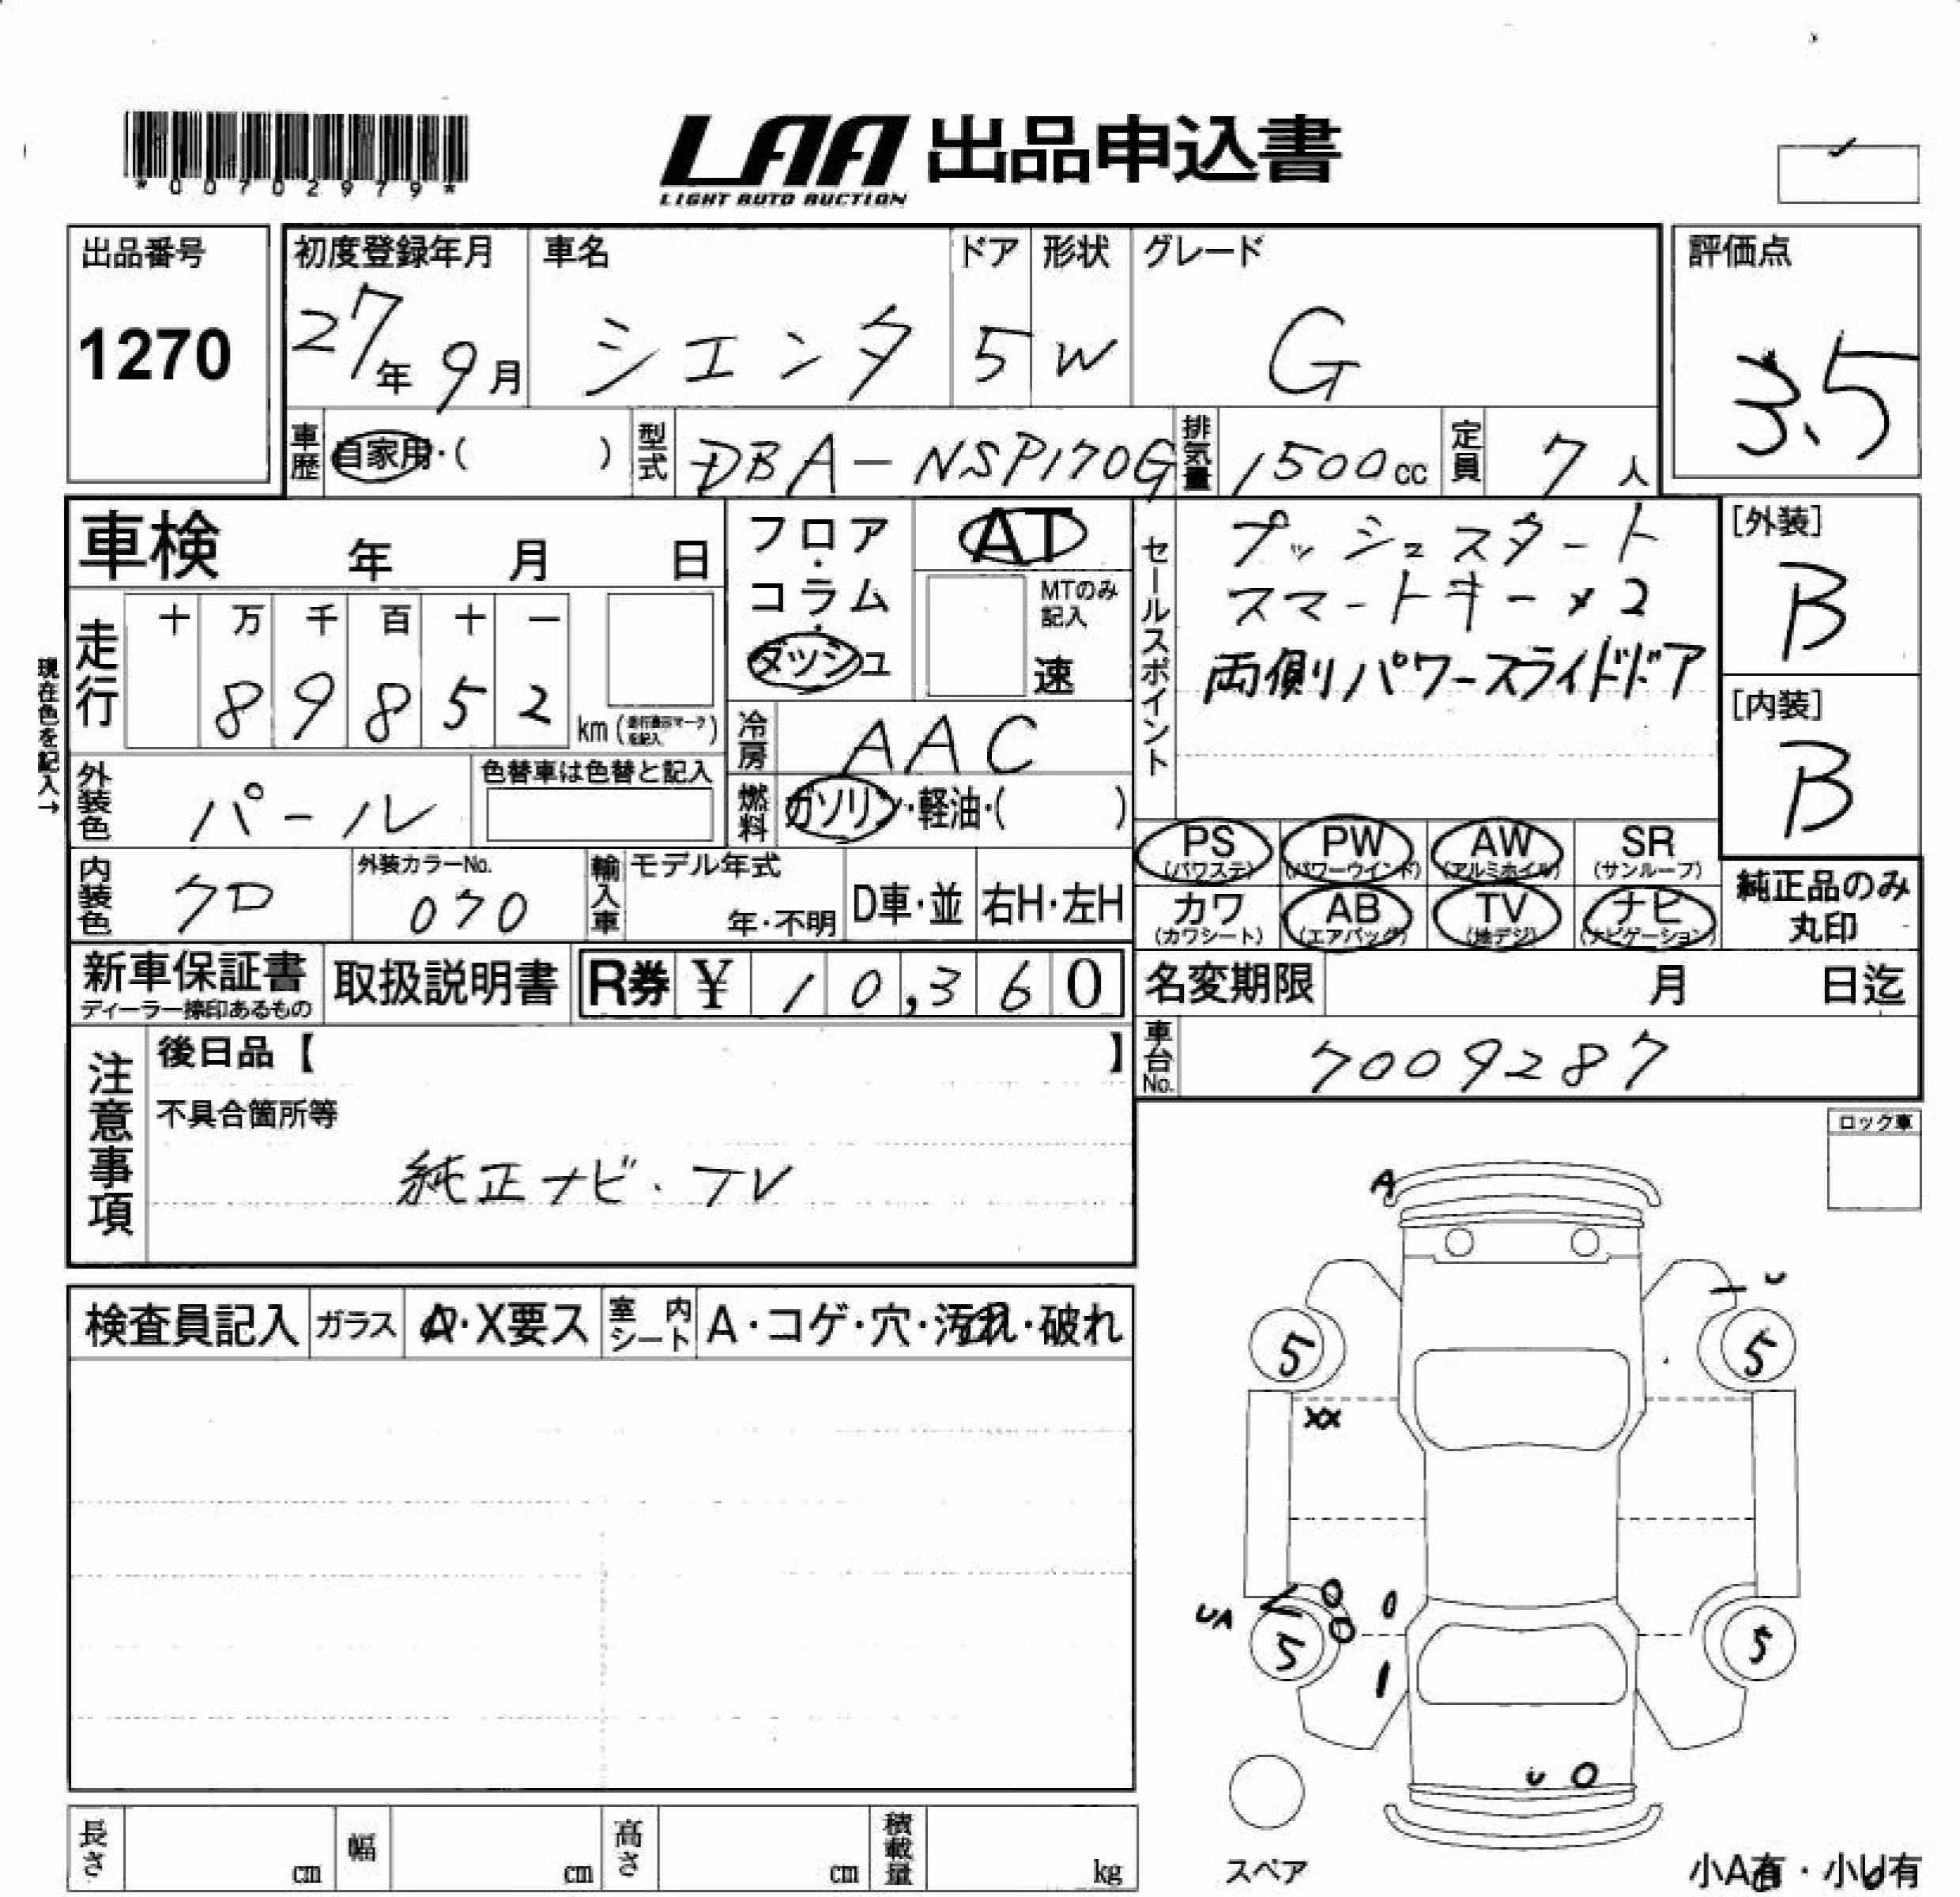 *00702979*
LAA 出品申込書
LIGHT AUTO AUCTION
出品番号
1270
初度登録年月
27年 9月
車名
シエンタ
ドア
5
形状
W
グレード
G
評価点
3.5
車歴 自家用・( )
型式 DBA-NSP170G
排気量 1500cc
定員 7人
車検 年 月 日
フロア・コラム・ダッシュ
AT
MTのみ記入
速
セールスポイント
プッシュスタート
スマートキー×2
両側パワースライドドア
[外装]
B
[内装]
B
現在色を記入→
走行
十 万 千 百 十 一
8 9 8 5 2
km
冷房 AAC
燃料 ガソリン・軽油・( )
外装色 パール
色替車は色替と記入
内装色 クロ
外装カラーNo.
070
輸入車
モデル年式
年・不明
D車・並
右H・左H
PS (パワステ)
PW (パワーウインド)
AW (アルミホイル)
SR (サンルーフ)
カワ (カワシート)
AB (エアバッグ)
TV (地デジ)
ナビ (ナビゲーション)
純正品のみ
丸印
新車保証書
ディーラー捺印あるもの
取扱説明書
R券 ¥ 10,360
名変期限 月 日迄
車台No. 7009287
注意事項
後日品【 】
不具合箇所等
純正ナビ・TV
ロック車
検査員記入
ガラス A・X要ス
室内シート A・コゲ・穴・汚れ・破れ
A
5
5
XX
UA
5
5
スペア
小A有・小U有
長さ cm
幅 cm
高さ cm
積載量 kg